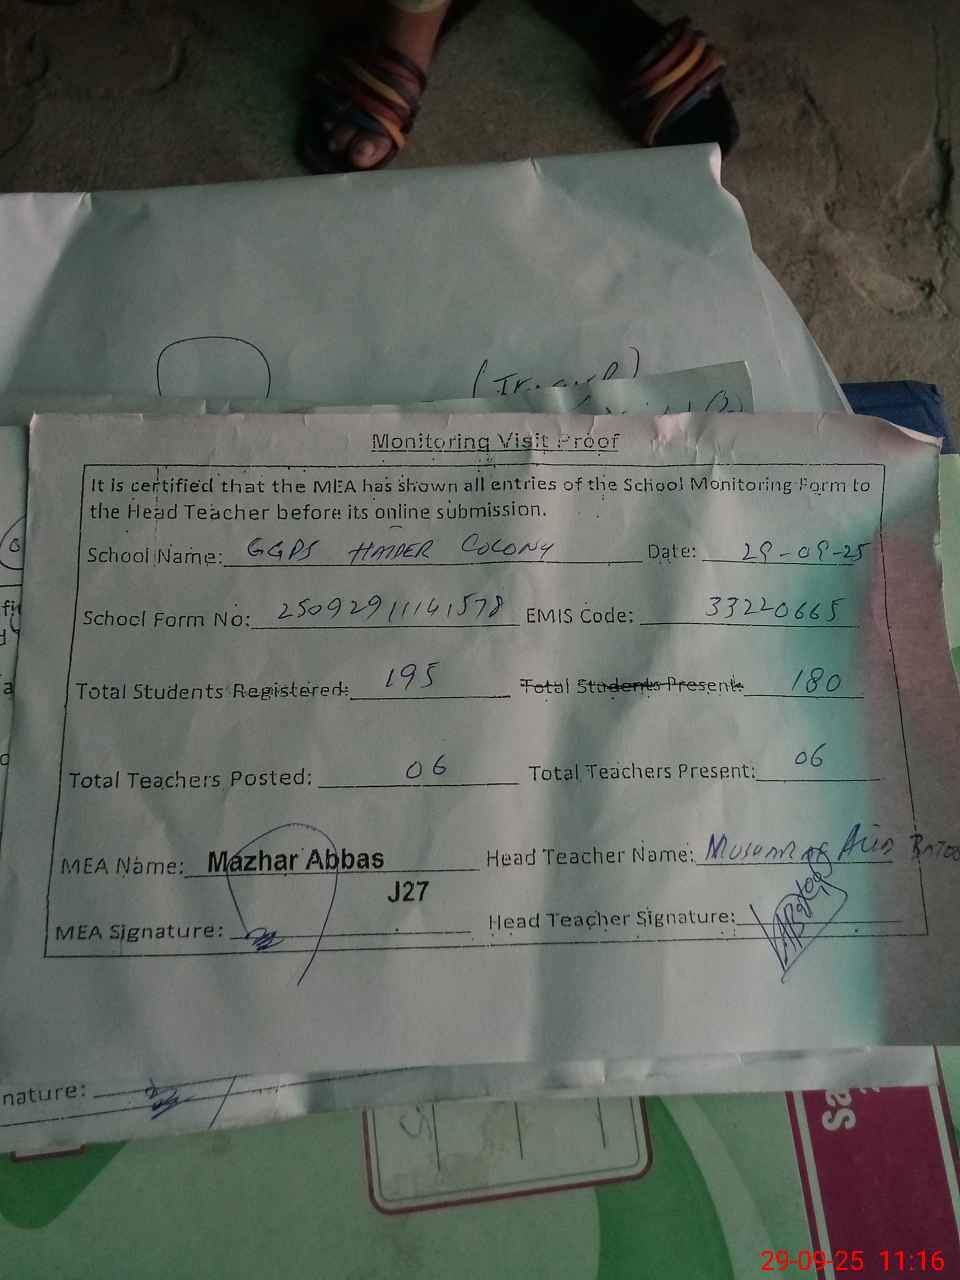 Monitoring Visit Proof
It is certified that the MEA has shown all entries of the School Monitoring Form to
the Head Teacher before its online submission.
School Name: GGPS HAIDER COLONY Date: 29-09-25
School Form No: 25092911141578 EMIS Code: 33220665
Total Students Registered: 195 Total Students Present: 180
Total Teachers Posted: 06 Total Teachers Present: 06
MEA Name: Mazhar Abbas Head Teacher Name:
J27
MEA Signature: Head Teacher Signature:
nature:
Sa
29-09-25 11:16